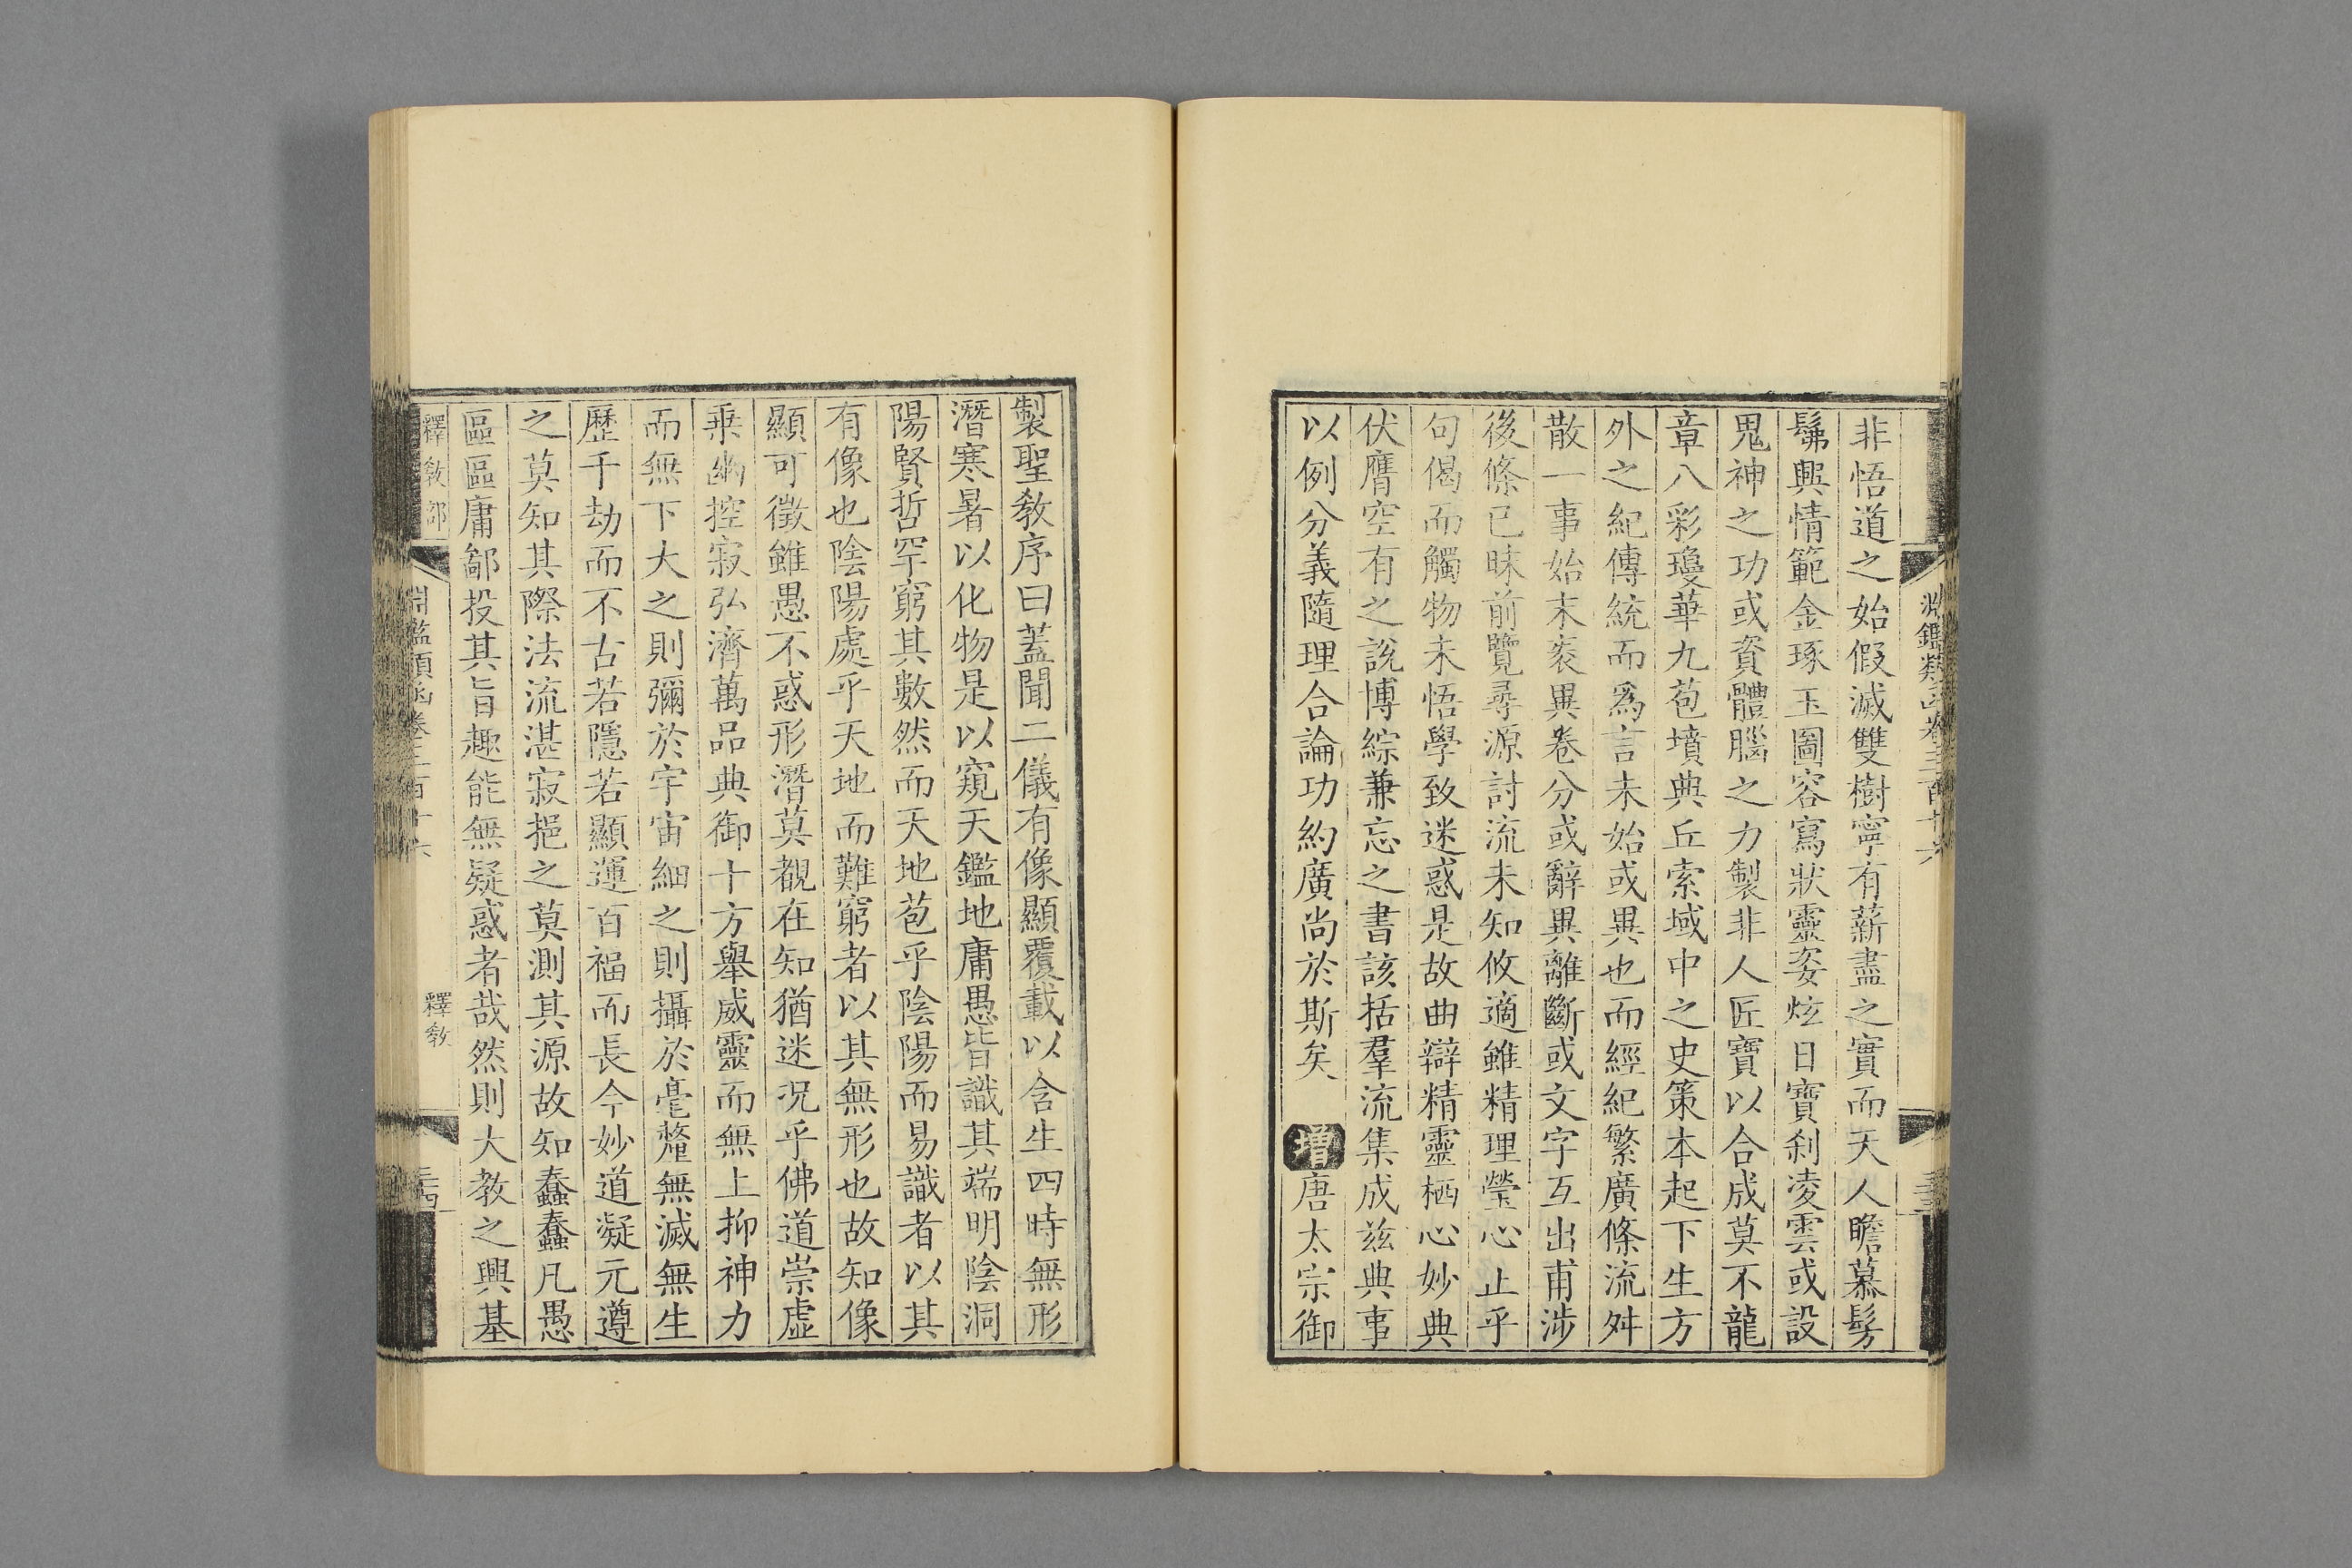 淵鑑類函卷三百十六
非悟道之始假滅雙樹寧有薪盡之實而天人瞻慕髣
髴興情範金琢玉圖容寫狀靈姿炫日寶刹凌雲或設
鬼神之功或資體腦之力製非人匠寶以合成莫不龍
章八彩瓊華九苞墳典丘索域中之史策本起下生方
外之紀傳統而爲言未始或異也而經紀繁廣條流舛
散一事始末袤異卷分或辭異離斷或文字互出甫涉
後條已昧前覽尋源討流未知攸適雖精理瑩心止乎
句偈而觸物未悟學致迷惑是故曲辯精靈栖心妙典
伏膺空有之說博綜兼忘之書該括羣流集成兹典事
以例分義隨理合論功約廣尚於斯矣 增唐太宗御
製聖敎序曰蓋聞二儀有像顯覆載以含生四時無形
潛寒暑以化物是以窺天鑑地庸愚皆識其端明陰洞
陽賢哲罕窮其數然而天地苞乎陰陽而易識者以其
有像也陰陽處乎天地而難窮者以其無形也故知像
顯可徵雖愚不惑形潛莫覩在知猶迷況乎佛道崇虛
乘幽控寂弘濟萬品典御十方舉威靈而無上抑神力
而無下大之則彌於宇宙細之則攝於毫釐無滅無生
歷千劫而不古若隱若顯運百福而長今妙道凝元遵
之莫知其際法流湛寂挹之莫測其源故知蠢蠢凡愚
區區庸鄙投其旨趣能無疑惑者哉然則大教之興基
釋敎部
淵鑑類函卷三百十六
釋敎